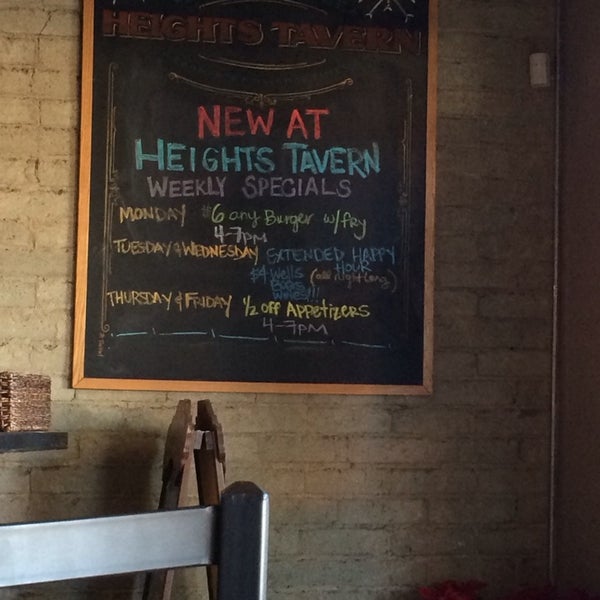 HEIGHTS TAVERN
NEW AT
HEIGHTS TAVERN
WEEKLY SPECIALS
MONDAY $6 any Burger w/fry
4-7pm
TUESDAY & WEDNESDAY EXTENDED HAPPY
HOUR
$4 Wells (all night long)
Beers
Wines!!!
THURSDAY & FRIDAY 1/2 off APPetizers
4-7PM